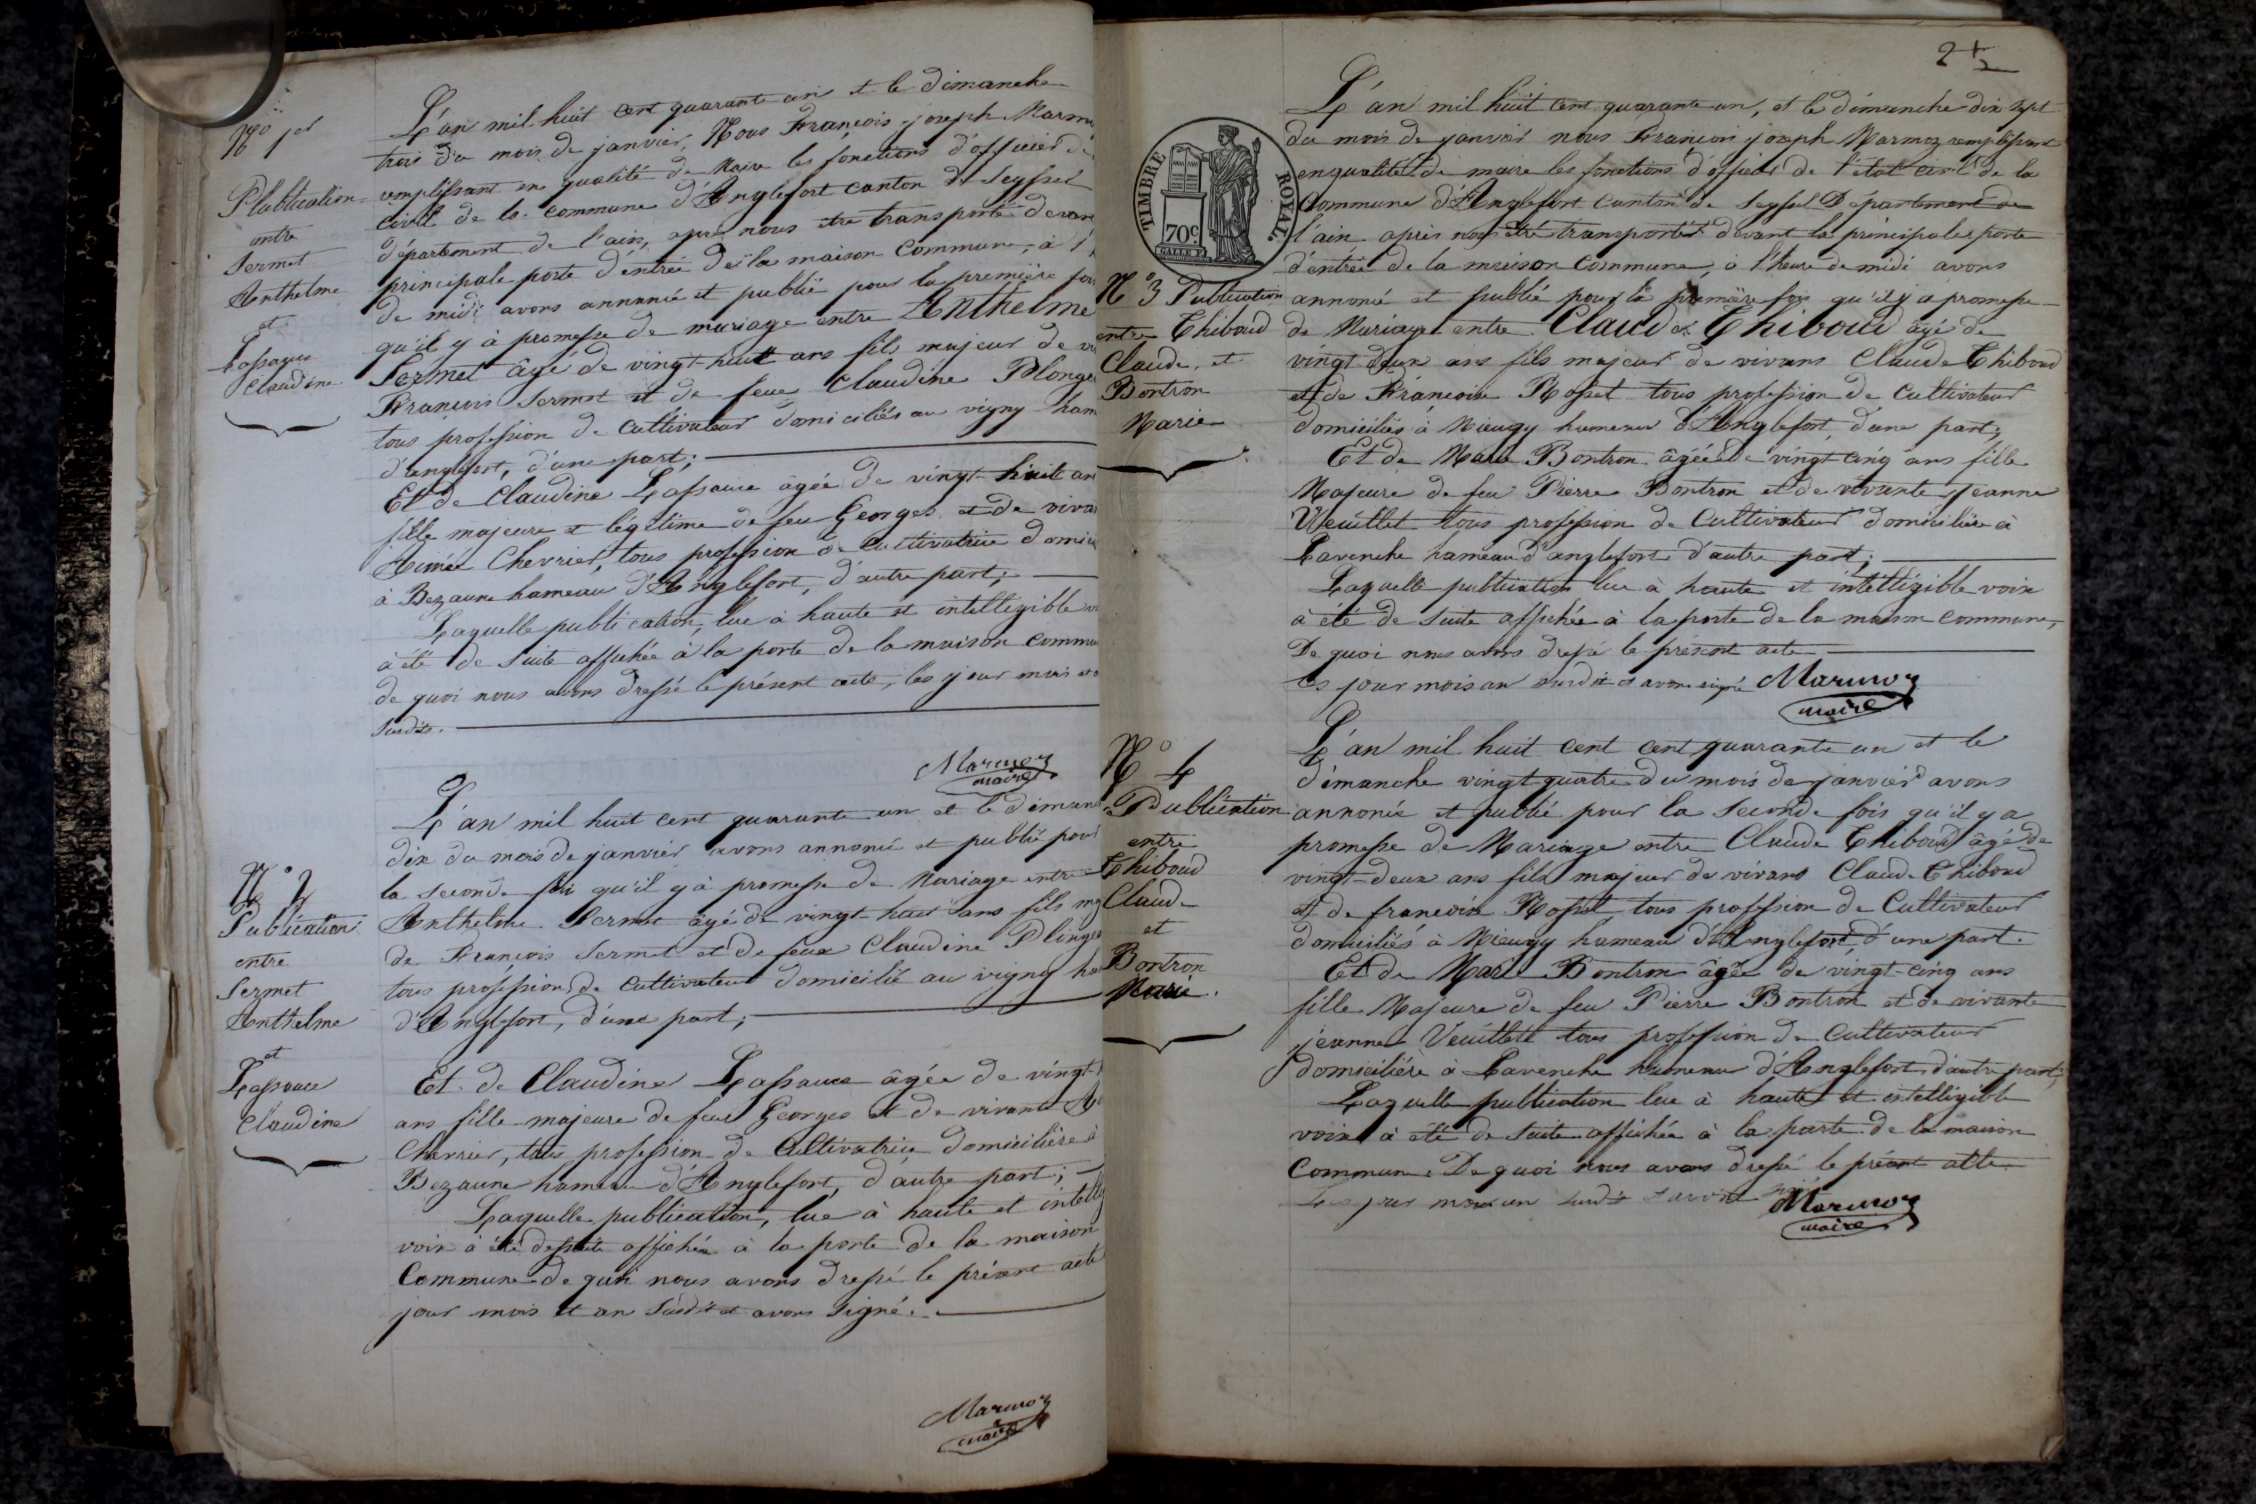 N° 1er
Publication
entre
Sermet
Anthelme
et
Lassauce
Claudine
L'an mil huit cent quarante un et le dimanche
trois du mois de janvier, Nous François joseph Marmo
remplissant en qualité de Maire les fonctions d'officier de
civil de la commune d'Anglefort canton de Seyssel
département de l'ain, après nous être transporté devan
principale porte d'entrée de la maison commune, à l'
de midi avons annoncé et publié pour la première fois
qu'il y à promesse de mariage entre Anthelme
Sermet âgé de vingt-huit ans fils majeur de vi
François Sermet et de feue Claudine Plonge
tous profession de cultivateur domiciliés au vigny ham
d'anglefort, d'une part;
Et de Claudine Lassauce âgée de vingt-huit an
fille majeure et légitime de feu Georges et de viva
Aimée Chevrier, tous profession de cultivatrice domici
à Bezaune hameau d'Anglefort, d'autre part;
Laquelle publication, lue à haute et intelligible
à été de suite affichée à la porte de la maison commu
de quoi nous avons dressé le présent acte, les jour mois et
susdits.
Marmoz
maire
N° 2
Publication
entre
Sermet
Anthelme
et
Lassauce
Claudine
L'an mil huit cent quarante un et le diman
dix du mois de janvier avons annoncé et publié pour
la seconde fois qu'il y à promesse de Mariage entre
Anthelme Sermet âgé de vingt huit ans fils maj
de François Sermet et de feue Claudine Plinge
tous profession de cultivateur domicilié au vigny ha
d'Anglefort, d'une part;
Et de Claudine Lassauce âgée de vingt
ans fille majeure de feu Georges et de vivante Ai
Chevrier, tous profession de Cultivatrice domicilière à
Bezaune hameau d'Anglefort, d'autre part;
Laquelle publication, lue à haute et intelli
voix à été de suite affichée à la porte de la maison
Commune de quoi nous avons dressé le présent acte
jour mois et an susdit et avons signé.
Marmoz
maire
2
TIMBRE ROYAL.
70c
N° 3 Publication
entre Thiboud
Claude, et
Bontron
Marie
L'an mil huit cent quarante un, et le dimanche dix sept
du mois de janvier nous François joseph Marmoz remplissant
en qualité de maire les fonctions d'officier de l'état civil de la
Commune d'Anglefort Canton de Seyssel Département de
l'ain après nous être transporté devant la principale porte
d'entrée de la maison Commune, à l'heure de midi avons
annoncé et publié pour la première fois qu'il y à promesse
de Mariage entre Claude Thiboud âgé de
vingt deux ans fils majeur de vivans Claude Thiboud
et de Francoise Rosset tous profession de Cultivateur
domiciliés à Mieugy hameau d'Anglefort, d'une part,
Et de Marie Bontron âgée de vingt cinq ans fille
Majeure de feu Pierre Bontron et de vivante jeanne
Veuillet tous profession de Cultivateur domicilière à
Lavenche hameau d'anglefort d'autre part;
Laquelle publication lue à haute et intelligible voix
à été de suite affichée à la porte de la maison commune,
De quoi nous avons dressé le présent acte
les jour mois an susdit et avons signé Marmoz
maire
N° 4
Publication
entre
Thiboud
Claude
et
Bontron
Marie.
L'an mil huit cent cent quarante un et le
dimanche vingt quatre du mois de janvier avons
annoncé et publié pour la seconde fois qu'il y a
promesse de Mariage entre Claude Thiboud âgé de
vingt-deux ans fils majeur de vivans Claude Thiboud
et de francoise Rosset tous profession de Cultivateur
domiciliés à Mieugy hameau d'Anglefort, d'une part.
Et de Marie Bontron âgée de vingt-cinq ans
fille Majeure de feu Pierre Bontron et de vivante
jeanne Veuillet tous profession de Cultivateur
domicilière à Lavenche hameau d'Anglefort d'autre part;
Laquelle publication lue à haute et intelligible
voix à été de suite affichée à la porte de la maison
Commune. De quoi nous avons dressé le présent acte
Les jour mois an susdit et avons signé Marmoz
maire